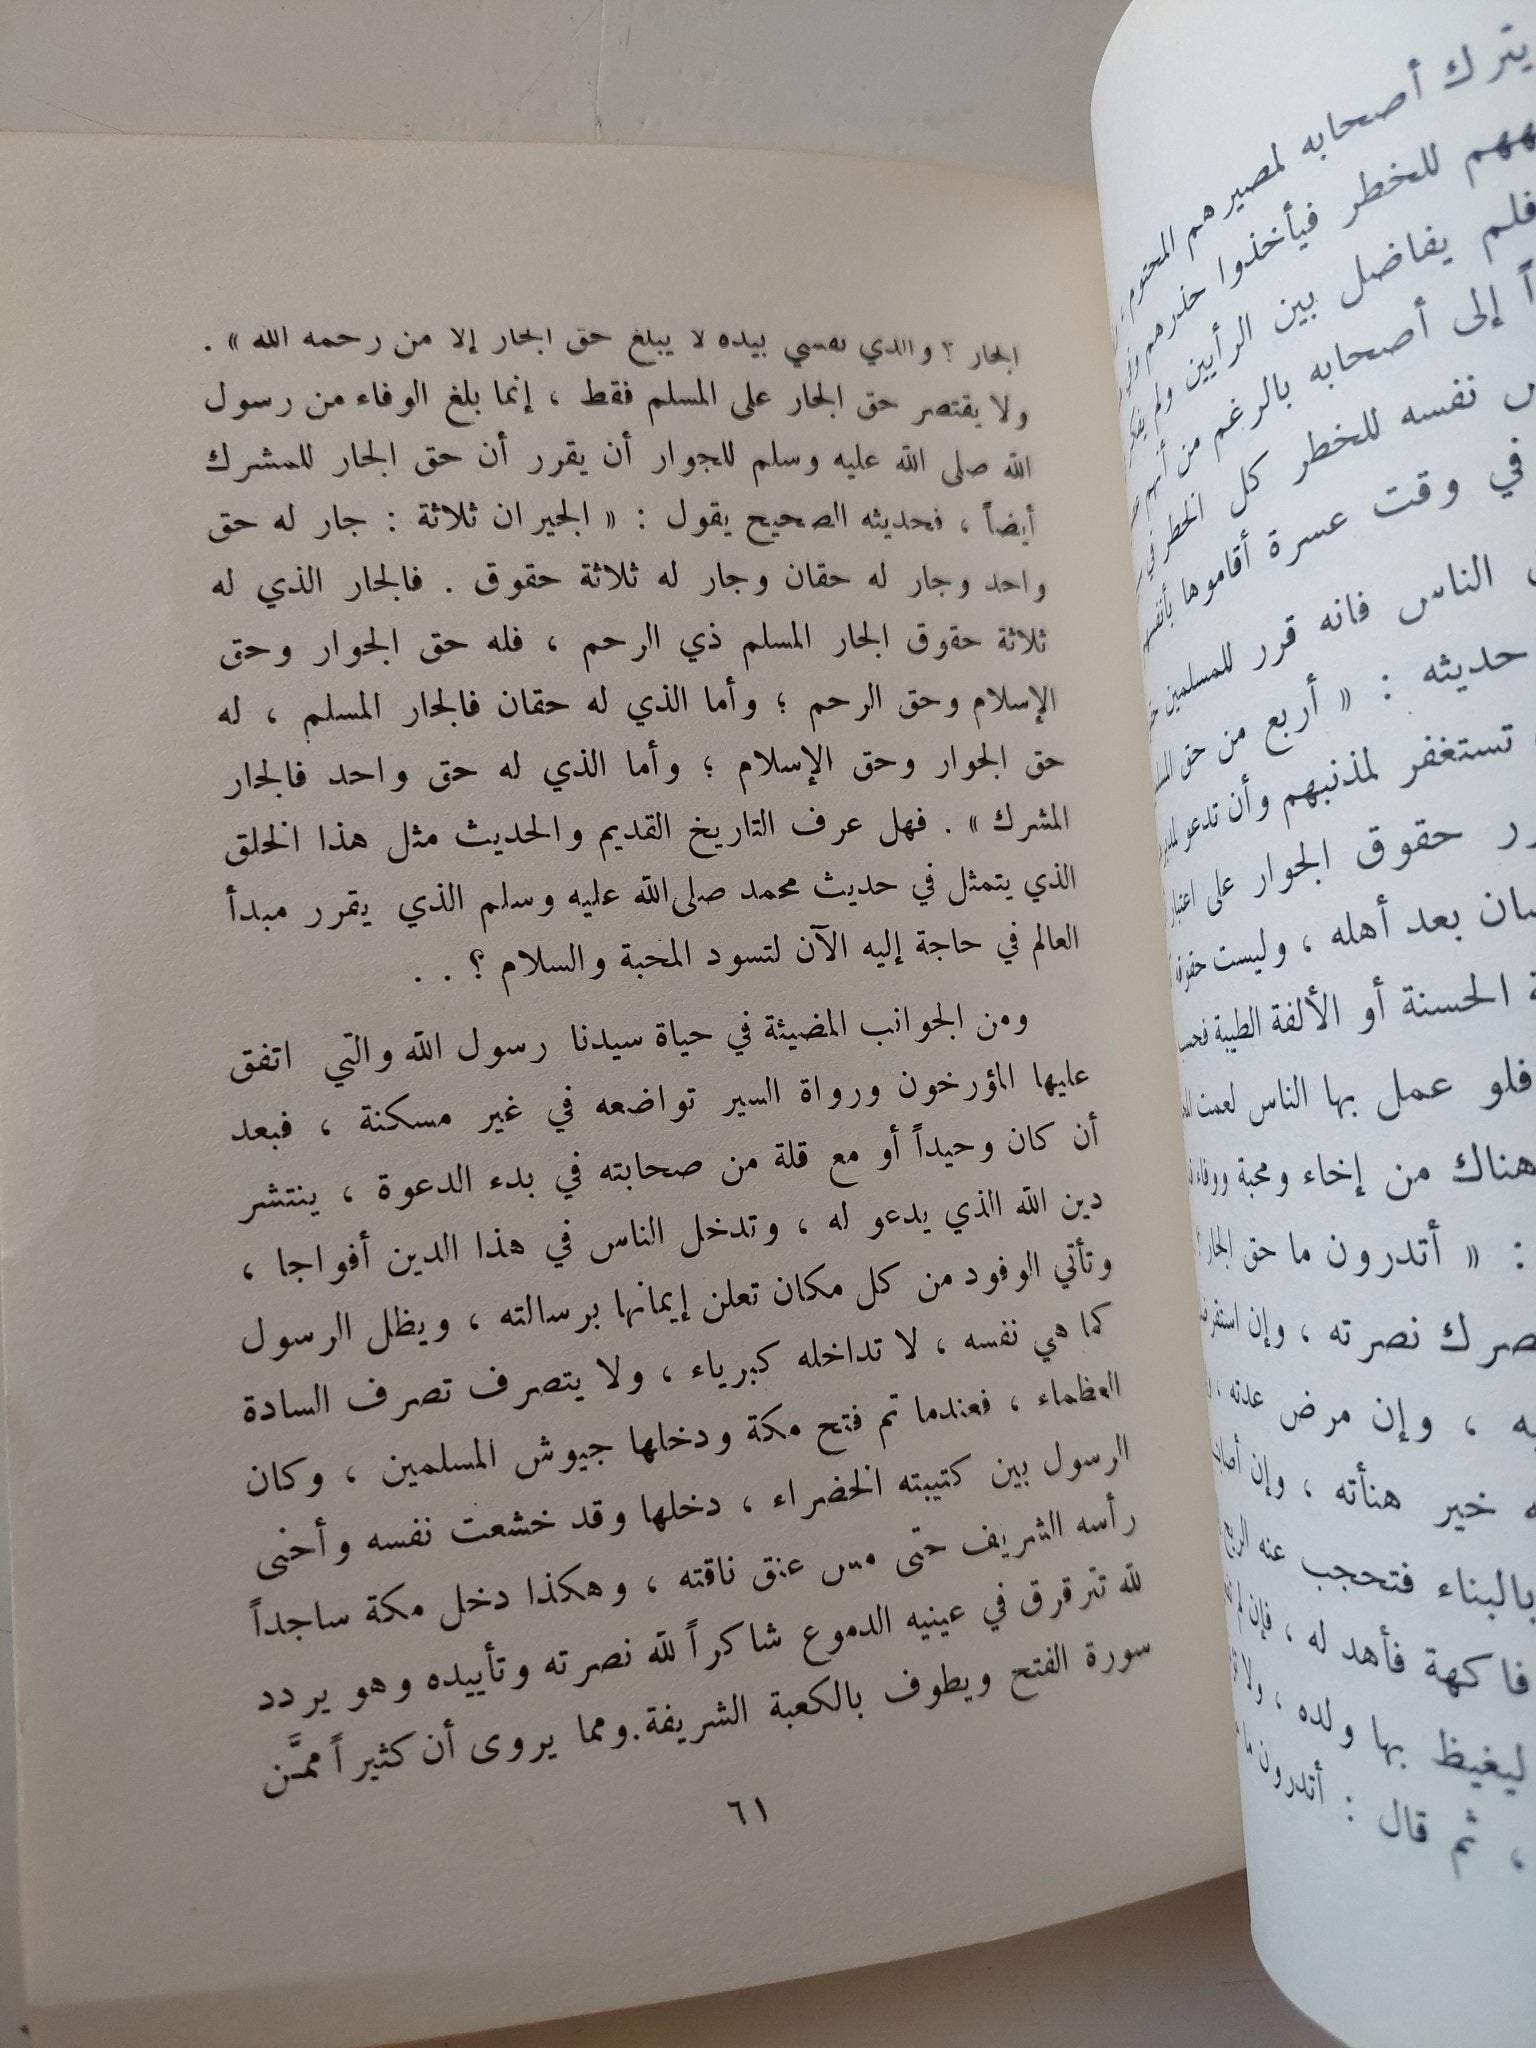 يترك أصحابه لمصيرهم المحتوم
للخطر فيأخذوا حذرهم
فلم يفاضل بين الرأيين ولم
إلى أصحابه بالرغم من أنهم
نفسه للخطر كل الخطر في
في وقت عسرة أقاموها بأنفسهم
الناس فانه قرر للمسلمين
حديثه : « أربع من حق
تستغفر لمذنبهم وأن تدعو
حقوق الجوار على اعتبار
بعد أهله ، وليست
الحسنة أو الألفة الطيبة
فلو عمل بها الناس لعمت
هناك من إخاء ومحبة ووفاء
: « أتدرون ما حق الجار
نصرته ، وإن
، وإن مرض عدته ،
خير هنأته ، وإن
بالبناء فتحجب عنه الريح
فاكهة فأهد له ، فإن لم
ليغيظ بها ولده ، ولا
، ثم قال : أتدرون ما
الجار ؟ والذي نفسي بيده لا يبلغ حق الجار إلا من رحمه الله » .
ولا يقتصر حق الجار على المسلم فقط ، إنما بلغ الوفاء من رسول
الله صلى الله عليه وسلم للجوار أن يقرر أن حق الجار للمشرك
أيضاً ، فحديثه الصحيح يقول : « الجيران ثلاثة : جار له حق
واحد وجار له حقان وجار له ثلاثة حقوق . فالجار الذي له
ثلاثة حقوق الجار المسلم ذي الرحم ، فله حق الجوار وحق
الإسلام وحق الرحم ؛ وأما الذي له حقان فالجار المسلم ، له
حق الجوار وحق الإسلام ؛ وأما الذي له حق واحد فالجار
المشرك » . فهل عرف التاريخ القديم والحديث مثل هذا الخلق
الذي يتمثل في حديث محمد صلى الله عليه وسلم الذي يقرر مبدأ
العالم في حاجة إليه الآن لتسود المحبة والسلام ؟ . .
ومن الجوانب المضيئة في حياة سيدنا رسول الله والتي اتفق
عليها المؤرخون ورواة السير تواضعه في غير مسكنة ، فبعد
أن كان وحيداً أو مع قلة من صحابته في بدء الدعوة ، ينتشر
دين الله الذي يدعو له ، وتدخل الناس في هذا الدين أفواجا ،
وتأتي الوفود من كل مكان تعلن إيمانها برسالته ، ويظل الرسول
كما هي نفسه ، لا تداخله كبرياء ، ولا يتصرف تصرف السادة
العظماء ، فعندما تم فتح مكة ودخلها جيوش المسلمين ، وكان
الرسول بين كتيبته الخضراء ، دخلها وقد خشعت نفسه وأحنى
رأسه الشريف حتى مس عنق ناقته ، وهكذا دخل مكة ساجداً
لله تترقرق في عينيه الدموع شاكراً لله نصرته وتأييده وهو يردد
سورة الفتح ويطوف بالكعبة الشريفة . ومما يروى أن كثيراً ممَّن
٦١